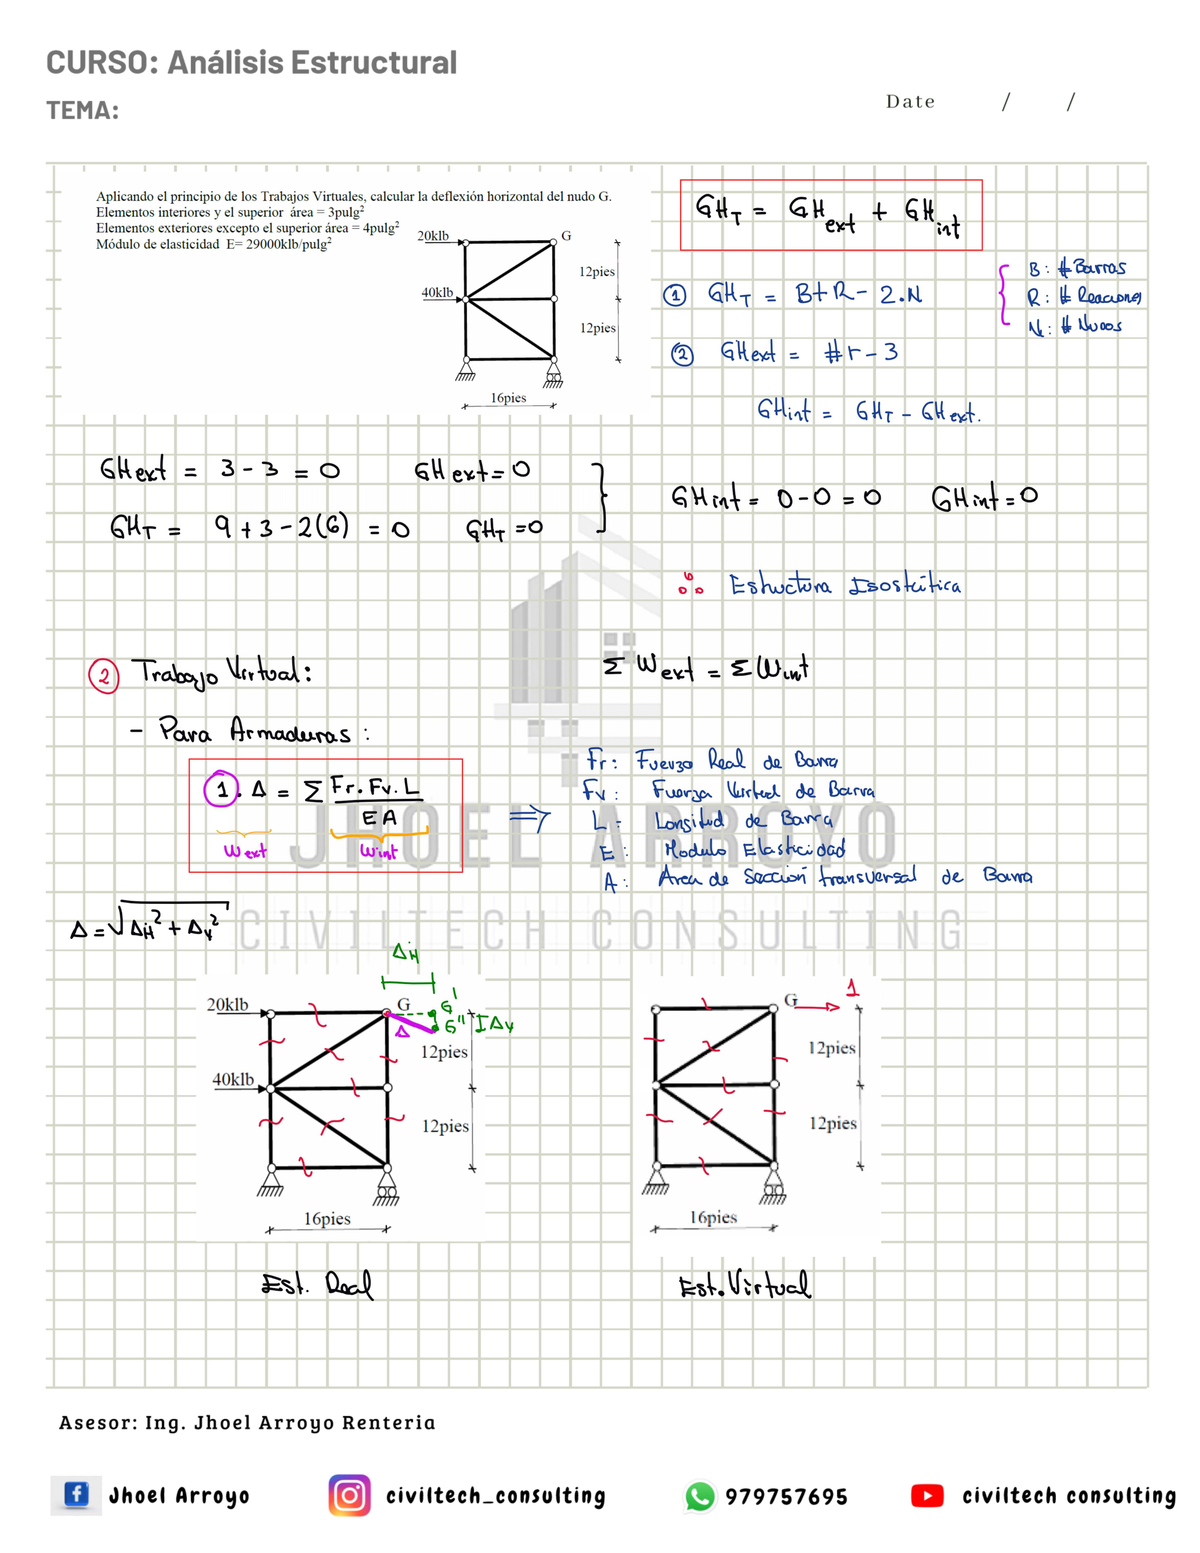 CURSO: Análisis Estructural
TEMA:
Date / /
Aplicando el principio de los Trabajos Virtuales, calcular la deflexión horizontal del nudo G.
Elementos interiores y el superior área = 3pulg²
Elementos exteriores excepto el superior área = 4pulg²
Módulo de elasticidad E= 29000klb/pulg²
20klb
G
12pies
40klb
12pies
16pies
GH_T = GH_ext + GH_int
① GH_T = B+R-2.N
B: # Barras
R: # Reacciones
N: # Nudos
② GHext = #r-3
GHint = GH_T - GHext.
GHext = 3-3 = 0
GHext=0
GH_T = 9+3-2(6) = 0
GH_T =0
GHint = 0-0 = 0
GHint=0
∴ Estructura Isostática
② Trabajo Virtual:
Σ Wext = Σ Wint
- Para Armaduras:
1. Δ = Σ Fr. Fv. L
EA
Wext
Wint
⇒
Fr: Fuerza Real de Barra
Fv: Fuerza Virtual de Barra
L: Longitud de Barra
E: Modulo Elasticidad
A: Area de Sección transversal de Barra
JHOEL ARROYO
CIVILTECH CONSULTING
Δ = √ΔH² + Δv²
ΔH
20klb
G
G'
G''
Δ
Δv
12pies
40klb
12pies
16pies
Est. Real
G
1
12pies
12pies
16pies
Est. Virtual
Asesor: Ing. Jhoel Arroyo Renteria
Jhoel Arroyo
civiltech_consulting
979757695
civiltech consulting